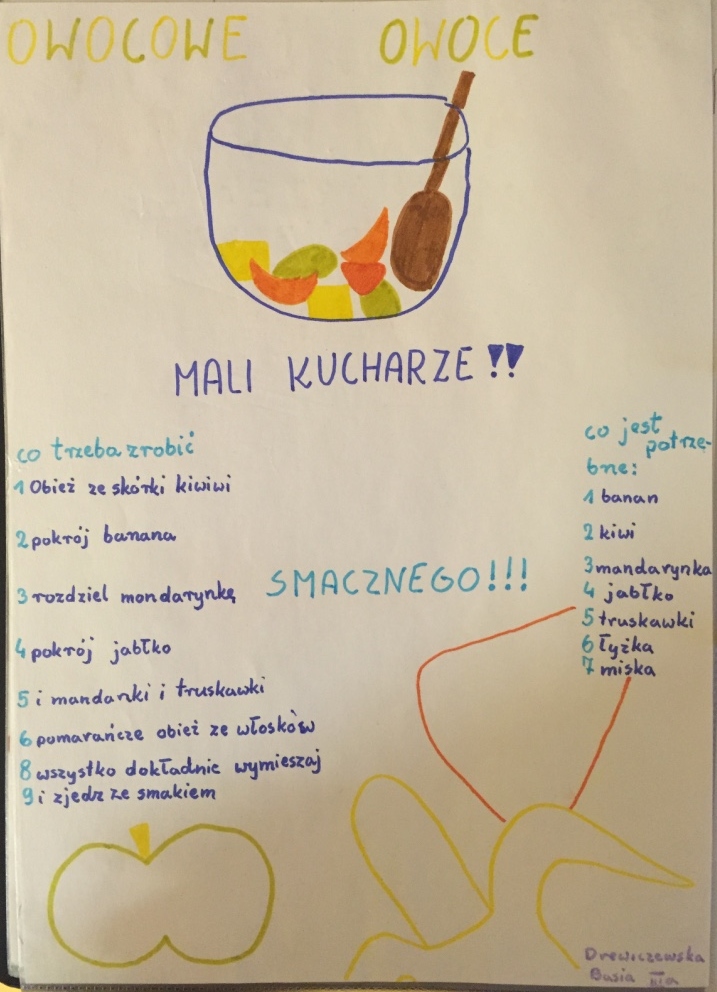 OWOCOWE OWOCE
MALI KUCHARZE!!
co trzeba zrobić
1 Obież ze skórki kiwiwi
2 pokrój banana
3 rozdziel mondarynkę
4 pokrój jabłko
5 i mandanki i truskawki
6 pomarańcze obież ze włosków
8 wszystko dokładnie wymieszaj
9 i zjedz ze smakiem
SMACZNEGO!!!
co jest
potrze-
bne:
1 banan
2 kiwi
3 mandarynka
4 jabłko
5 truskawki
6 łyżka
7 miska
Drewiczewska
Basia IIIa